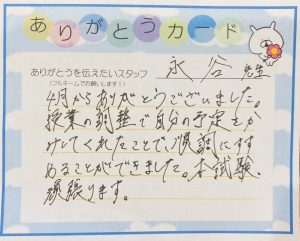 ありがとうカード
ありがとうを伝えたいスタッフ
(フルネームでお願いします！)
永谷 先生
4月からありがとうございました。
授業の調整で自分の予定をか
みしてくれたことで、順調にすす
めることができました。本試験、
頑張ります。